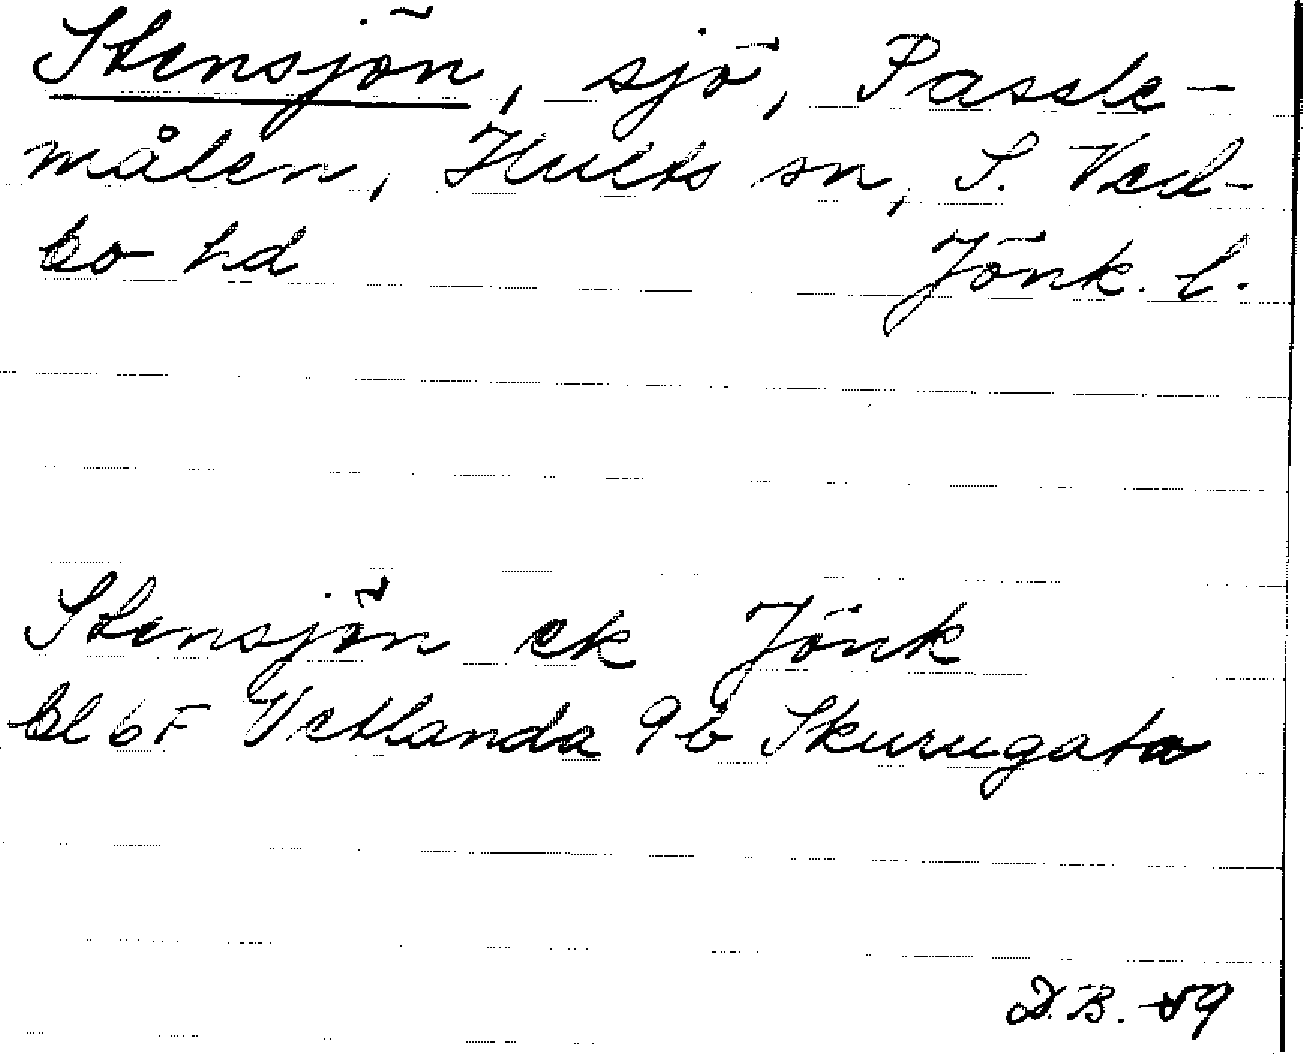 Stensjön, sjö, Passle-
målen, Hults sn, S. Ved-
bo hd Jönk. l.
Stensjön ek Jönk
bl 6F Vetlanda 9b Skurugata
D.B. -59